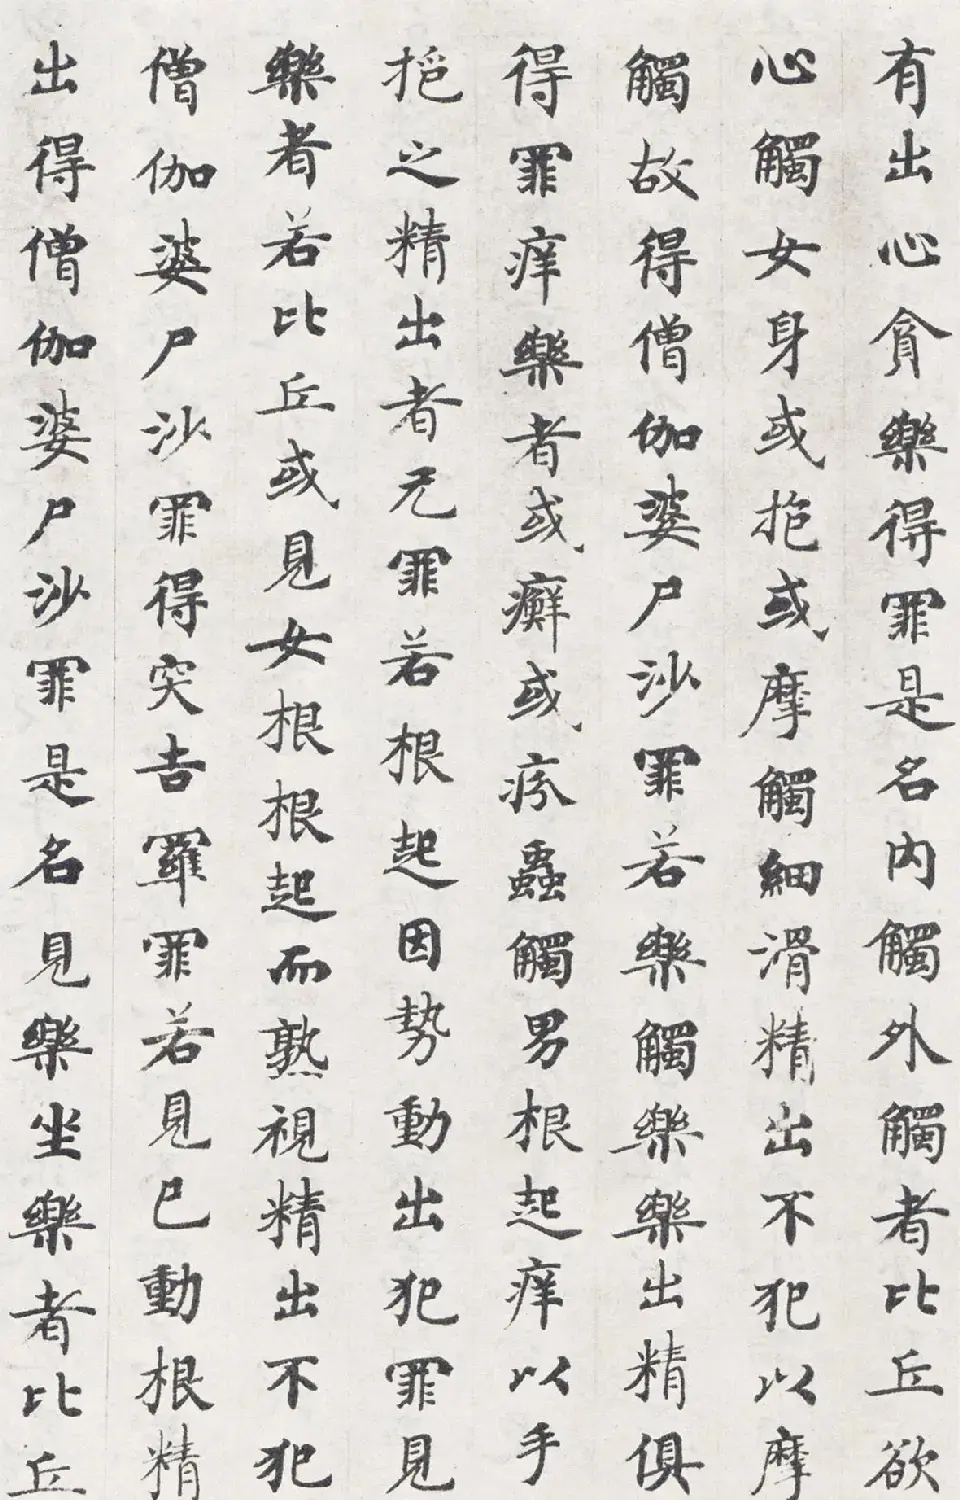 有出心貪樂得罪是名内觸外觸者比丘欲
心觸女身或抱或摩觸細滑精出不犯以摩
觸故得僧伽婆尸沙罪若樂觸樂樂出精俱
得罪痒樂者或癬或疥蟲觸男根起痒以手
抱之精出者无罪若根起因勢動出犯罪見
樂者若比丘或見女根根起而熟視精出不犯
僧伽婆尸沙罪得突吉羅罪若見已動根精
出得僧伽婆尸沙罪是名見樂坐樂者比丘